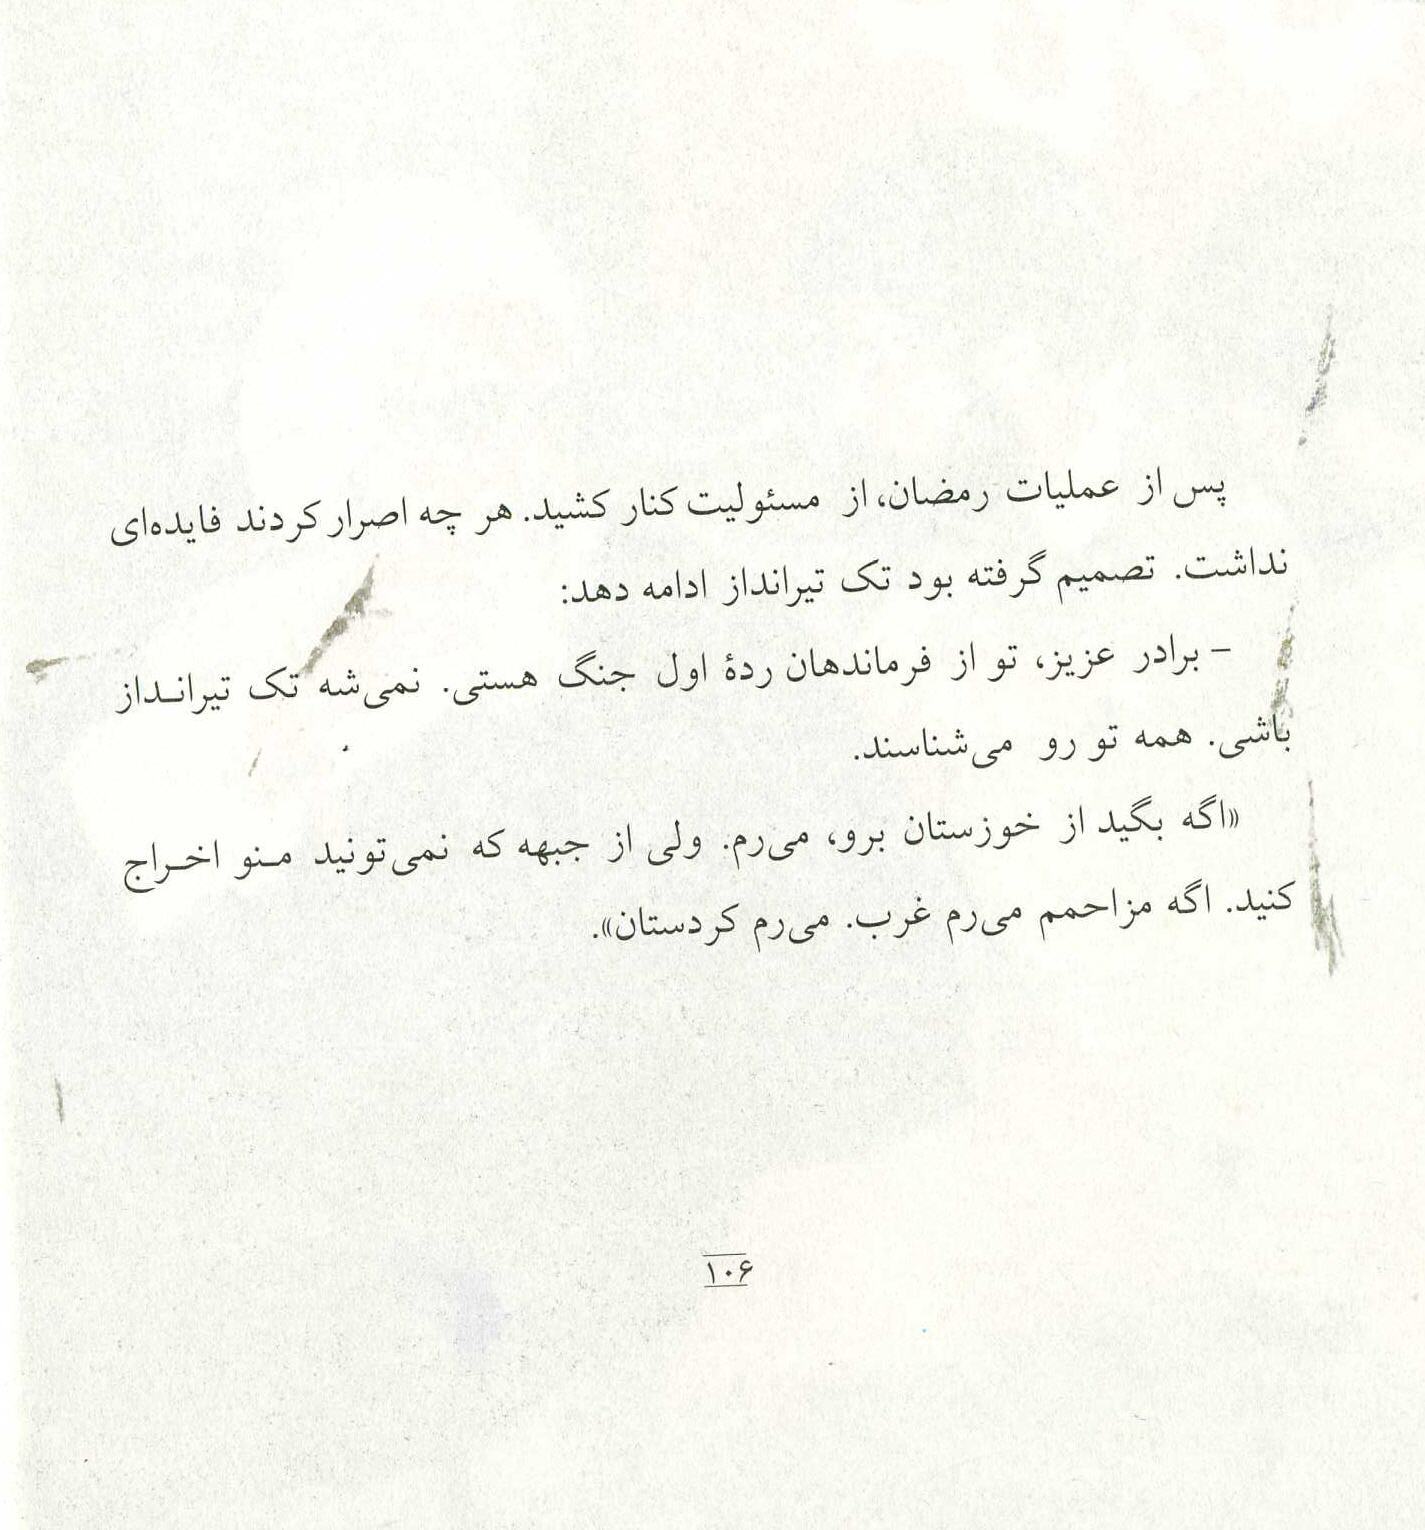 پس از عملیات رمضان، از مسئولیت کنار کشید. هر چه اصرار کردند فایده‌ای
نداشت. تصمیم گرفته بود تک تیرانداز ادامه دهد:
- برادر عزیز، تو از فرماندهان ردهٔ اول جنگ هستی. نمی‌شه تک تیرانـداز
باشی. همه تو رو می‌شناسند.
«اگه بگید از خوزستان برو، می‌رم. ولی از جبهه که نمی‌تونید مـنو اخـراج
کنید. اگه مزاحمم می‌رم غرب. می‌رم کردستان».
۱۰۶